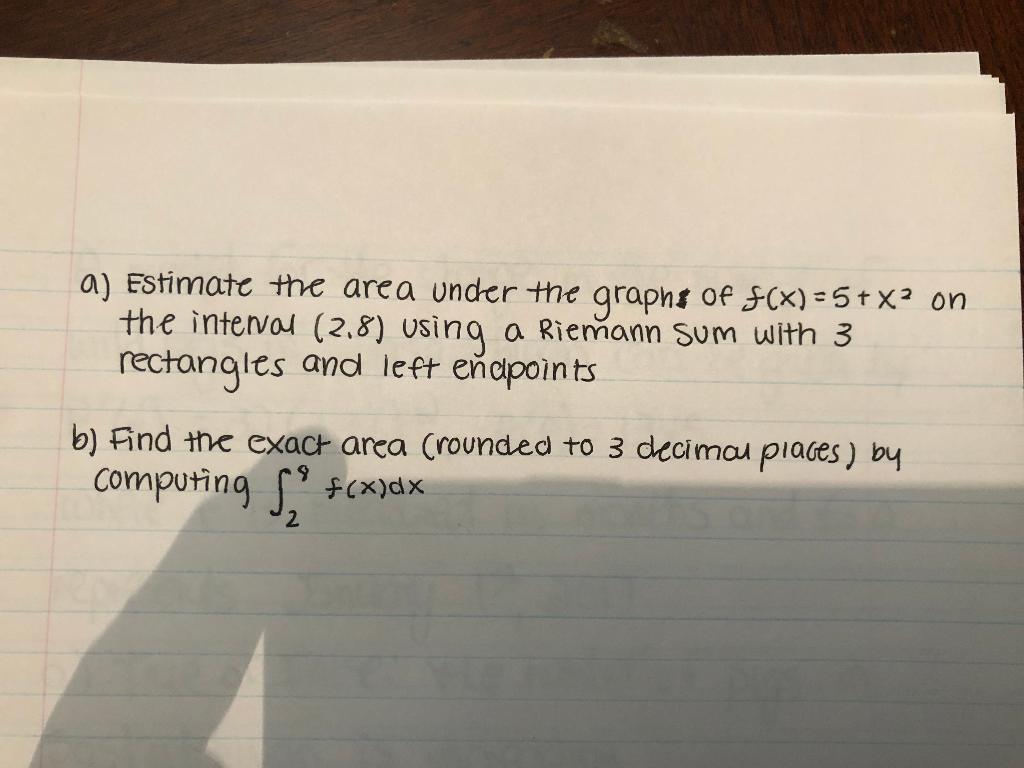 a) Estimate the area under the graph of f(x) = 5 + x² on
the interval (2,8) using a Riemann Sum with 3
rectangles and left endpoints
b) Find the exact area (rounded to 3 decimal places) by
computing ∫₂⁸ f(x)dx